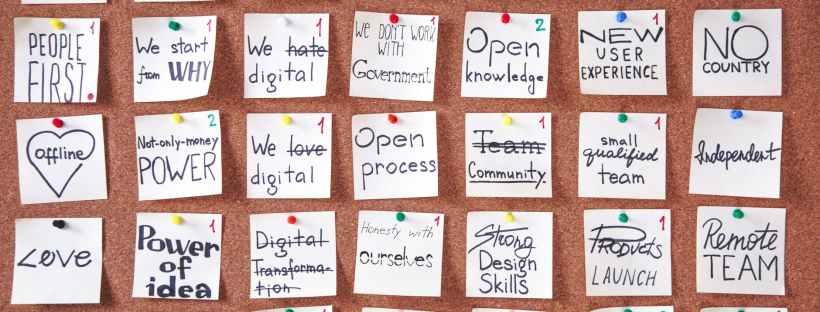 PEOPLE 1
FIRST.
We start 1
from WHY
We hate 1
digital
We DON'T WORK 1
WITH
Government
Open 2
knowledge
NEW 1
USER
EXPERIENCE
NO
COUNTRY
offline
Not-only-money 2
POWER
We love 1
digital
Open
process
Team 1
Community.
small 1
qualified
team
Independent
Love
Power 1
of
idea
Digital
Transforma-
tion
Honesty with 1
ourselves
Strong
Design
Skills
Products 1
LAUNCH
Remote
TEAM